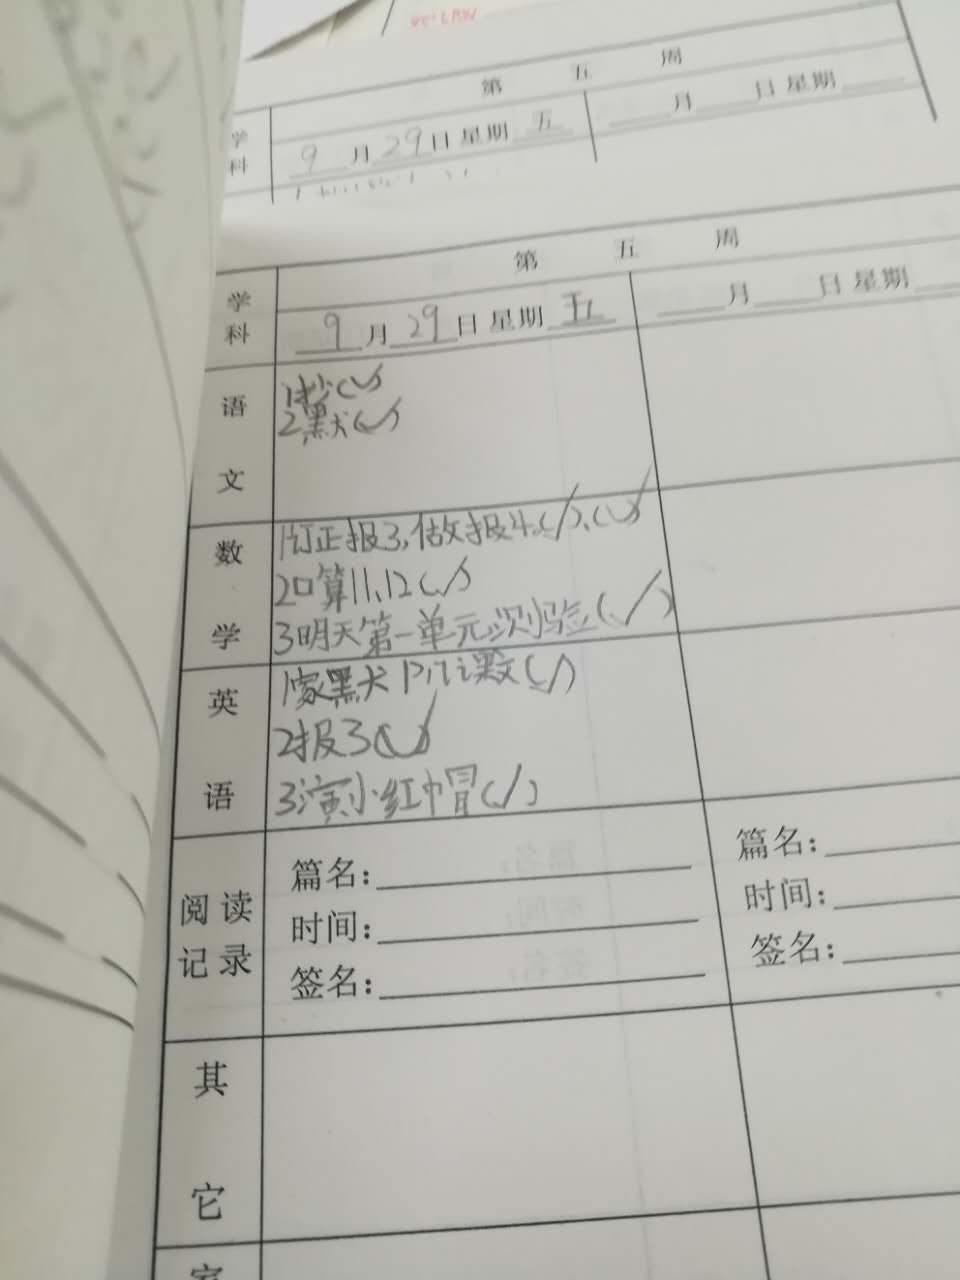 第 五 周
学科
9月29日 星期五
月 日 星期
第 五 周
学科
9月29日 星期五
月 日 星期
语文
1抄(✓)
2默(✓)
数学
1订正报3,做报4(✓)、(✓)
2口算11、12(✓)
3明天第一单元测验(✓)
英语
1家默 课文(✓)
2报3(✓)
3演小红帽(✓)
阅读记录
篇名:
时间:
签名:
篇名:
时间:
签名:
其它
家